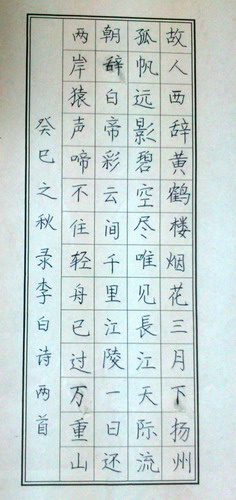 故人西辞黄鹤楼烟花三月下扬州
孤帆远影碧空尽唯见長江天际流
朝辞白帝彩云间千里江陵一日还
两岸猿声啼不住轻舟已过万重山
癸巳之秋录李白诗两首